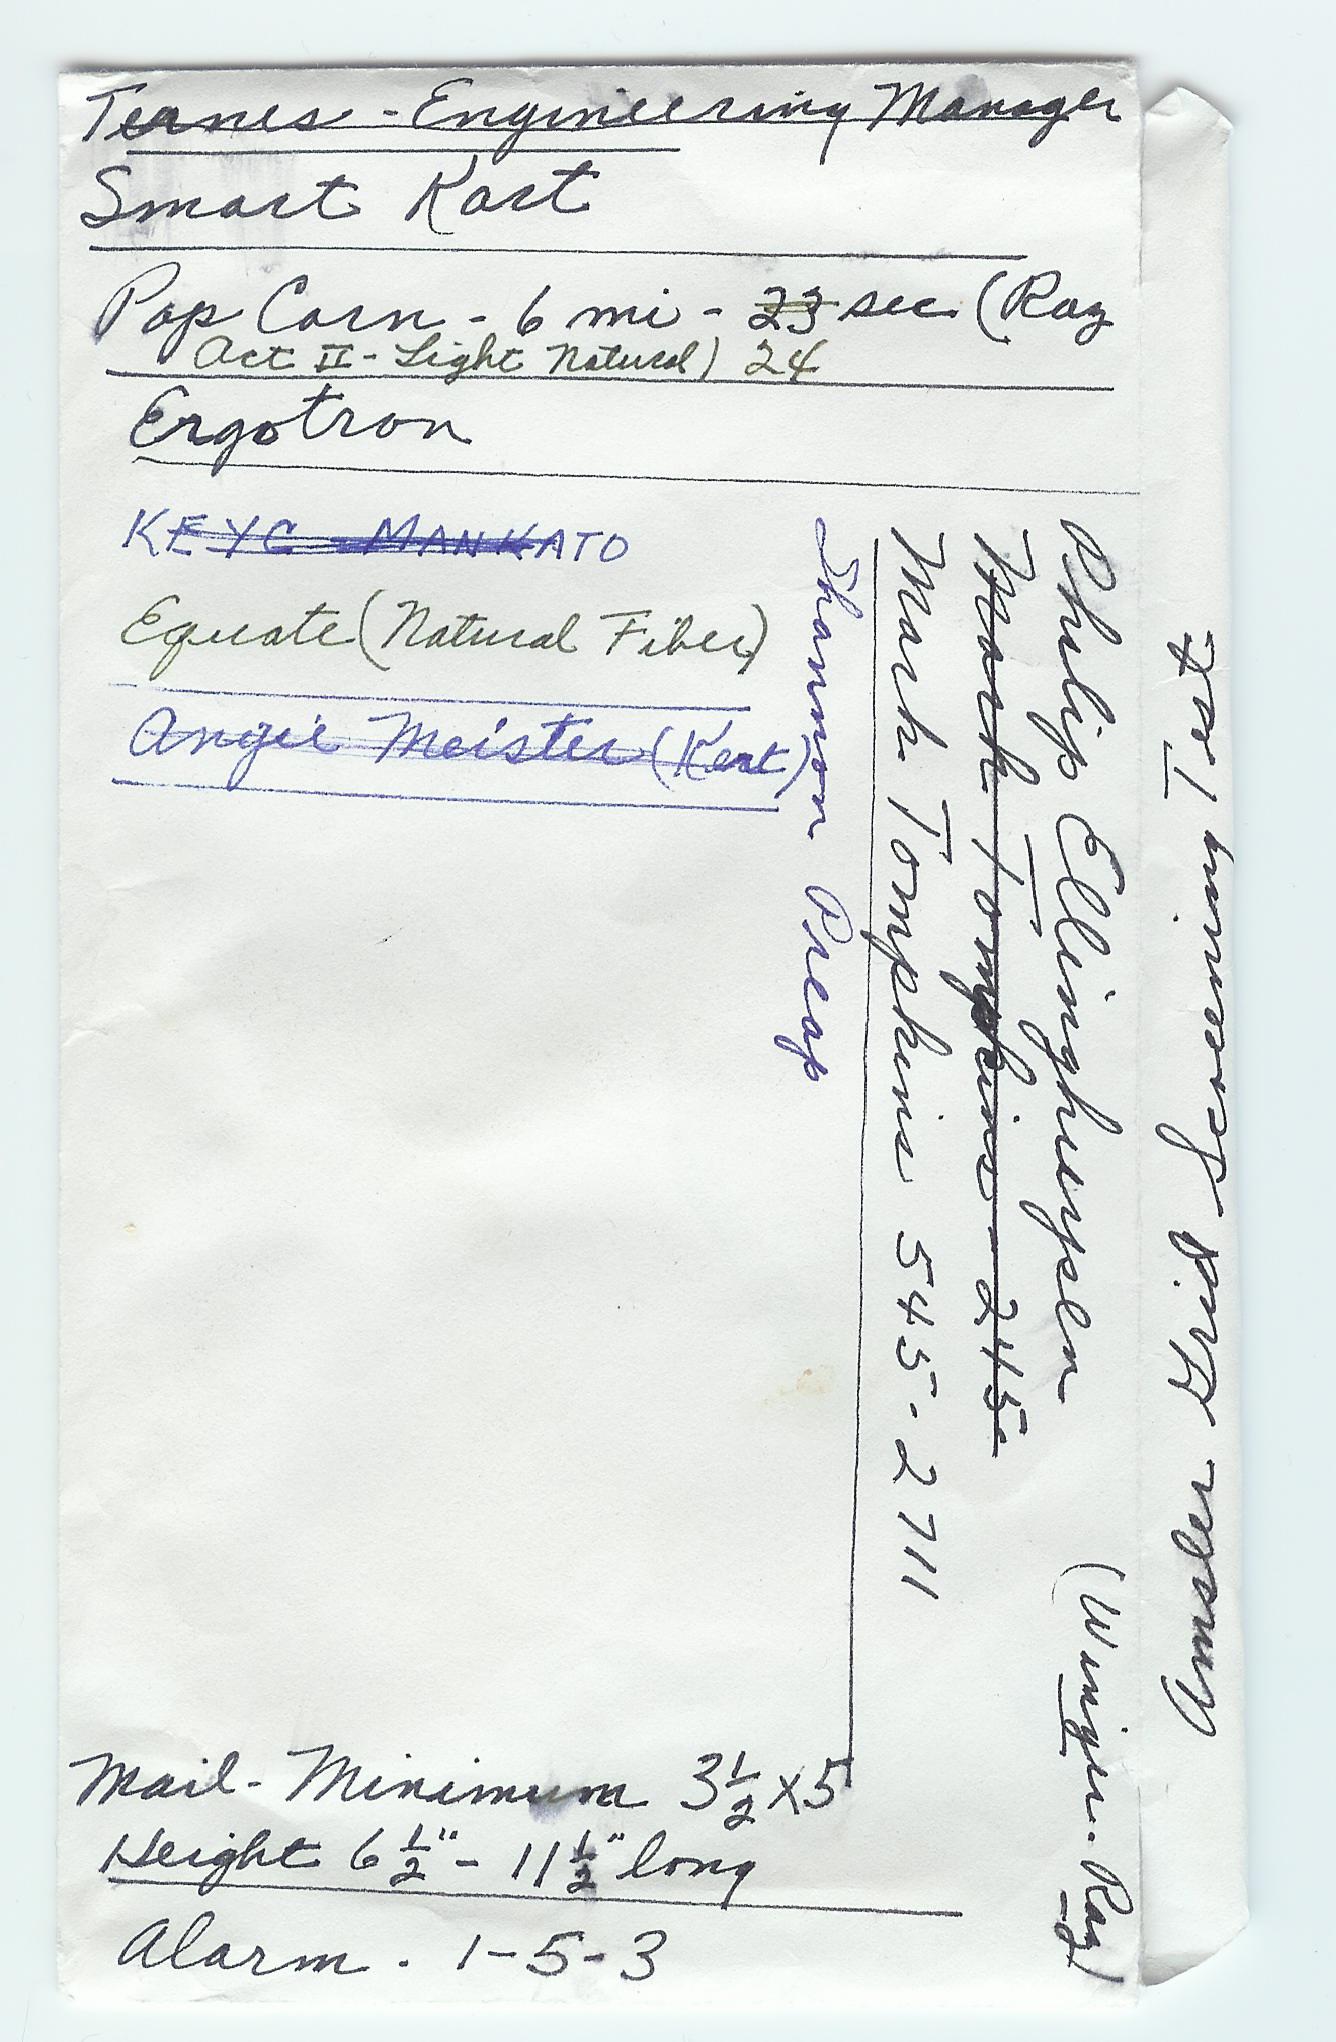 Teanes - Engineering Manager
Smart Kart
Pop Corn - 6 mi - 23 sec (Ray
Act II - Light Natural) 24
Ergotron
KEYC MANKATO
Equate (Natural Fiber)
Angie Meister (Kent)
Shannon Preap
Mark Tompkins 545-2711
Mark Tompkins - 245
Philip Ellinghuysen (Winger. Ray)
Amsler Grid Screening Test
Mail - Minimum 3 1/2 x 5
Height 6 1/2" - 11 1/2" long
Alarm . 1-5-3